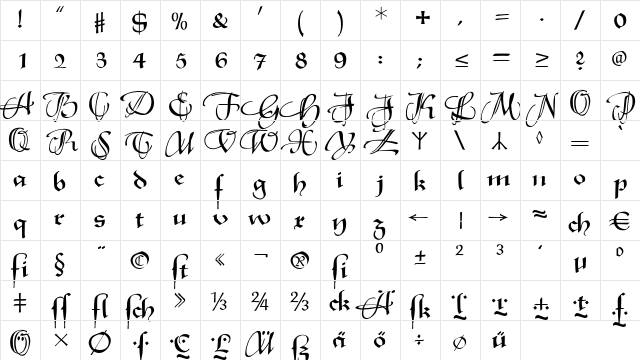 ! “ # $ % & ' ( ) * + , = · / 0
1 2 3 4 5 6 7 8 9 : ; ≤ = ≥ ? @
A B C D E F G H I J K L M N O P
Q R S T U V W X Y Z \ ◊ =
a b c d e f g h i j k l m n o p
q r s t u v w x y z ← ¦ → ≈ ch €
fi § ¨ © ſt « ¬ ® ſi ⁰ ± ² ³ ´ º
‡ ſſ fl ſch » ⅓ ²⁄₄ ⅔ ck Ä ſk
Ö × Ø Ü ß ä ö ÷ ø ü